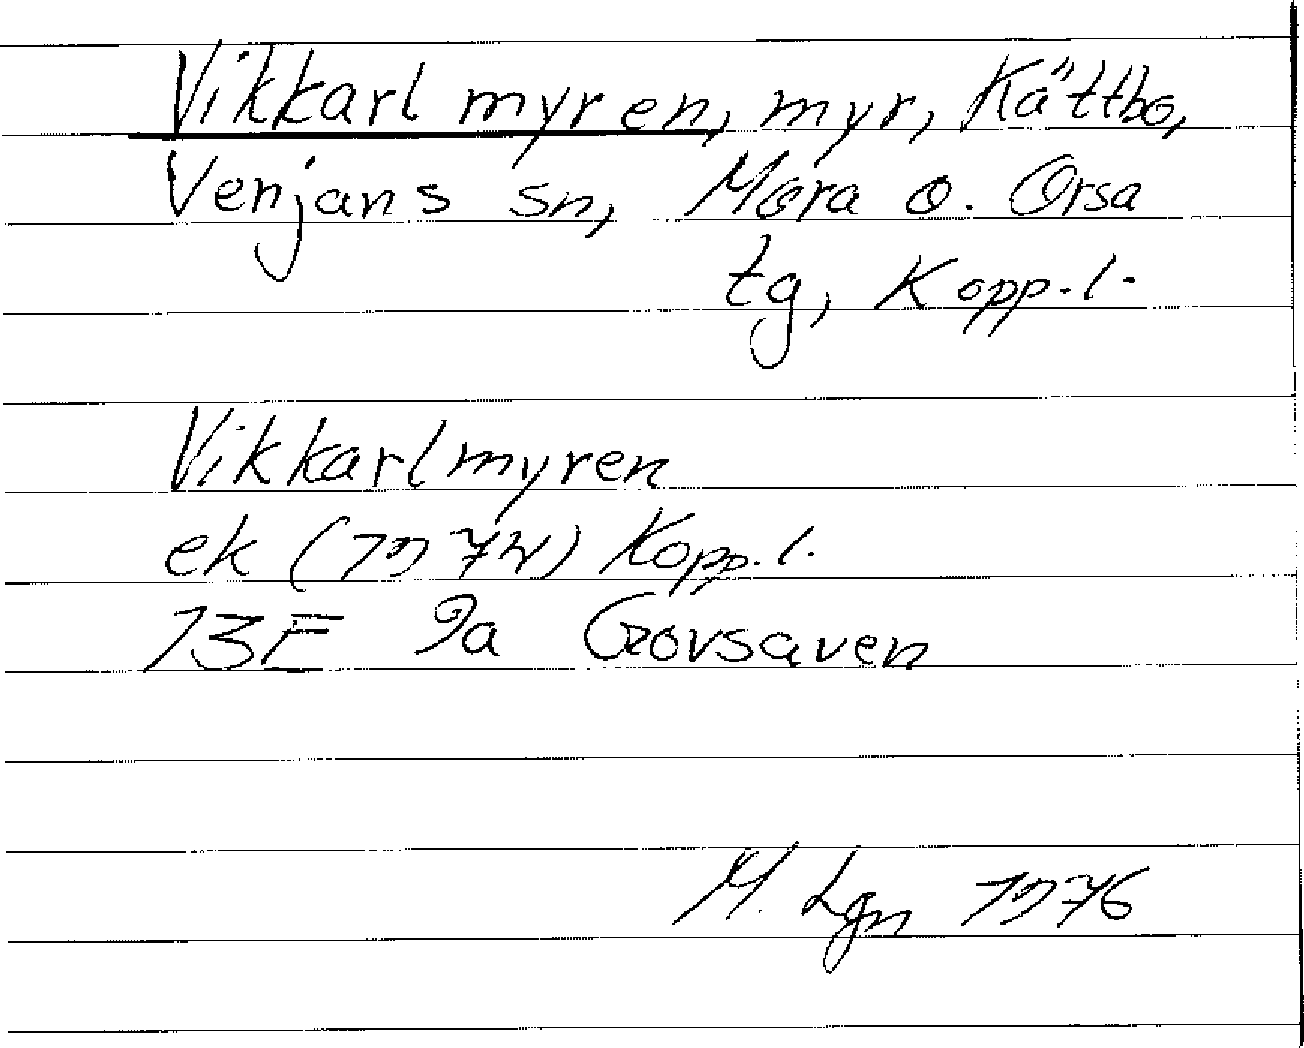 Vikkarlmyren, myr, Kättbo,
Venjans sn, Mora o. Orsa
tg, Kopp.l.
Vikkarlmyren
ek (1974) Kopp.l.
13E 9a Govsaven
M. Lgn 1976